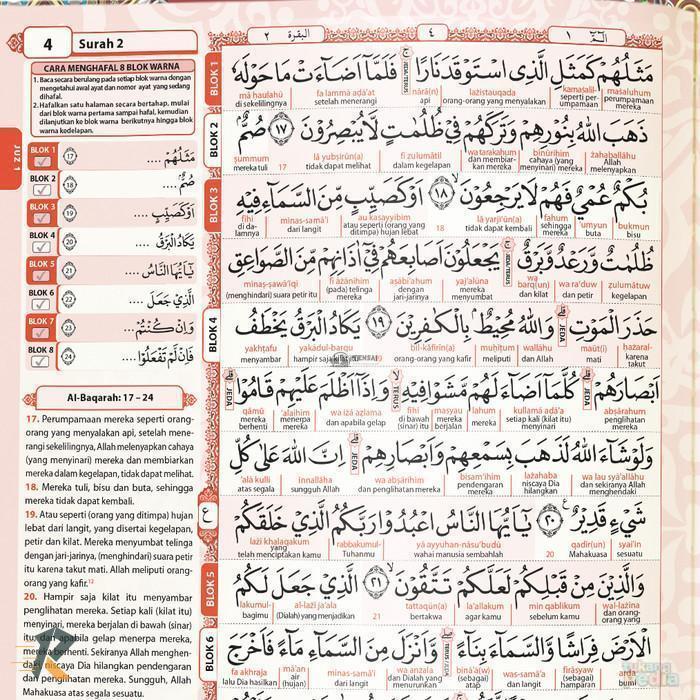 4
Surah 2
CARA MENGHAFAL 8 BLOK WARNA
1. Baca secara berulang pada setiap blok warna dengan
mengetahui awal ayat dan nomor ayat yang sedang
dihafal.
2. Hafalkan satu halaman secara bertahap, mulai
dari blok warna pertama sampai hafal, kemudian
dilanjutkan ke blok warna berikutnya hingga blok
warna kedelapan.
JUZ 1
BLOK 1 ١٧ مَثَلُهُمْ ....
BLOK 2 ١٨ صُمٌّ ....
BLOK 3 ١٩ اَوْ كَصَيِّبٍ ...
BLOK 4 ٢٠ يَكَادُ الْبَرْقُ ...
BLOK 5 ٢١ يٰٓاَيُّهَا النَّاسُ ...
BLOK 6 ٢٢ الَّذِيْ جَعَلَ ...
BLOK 7 ٢٣ وَاِنْ كُنْتُمْ ...
BLOK 8 ٢٤ فَاِنْ لَّمْ تَفْعَلُوْا ...
Al-Baqarah: 17 – 24
17. Perumpamaan mereka seperti orang-
orang yang menyalakan api, setelah mene-
rangi sekelilingnya, Allah menyelapkan cahaya
(yang menyinari) mereka dan membiarkan
mereka dalam kegelapan, tidak dapat melihat.
18. Mereka tuli, bisu dan buta, sehingga
mereka tidak dapat kembali.
19. Atau seperti (orang yang ditimpa) hujan
lebat dari langit, yang disertai kegelapan,
petir dan kilat. Mereka menyumbat telinga
dengan jari-jarinya, (menghindari) suara petir
itu karena takut mati. Allah meliputi orang-
orang yang kafir.¹²
20. Hampir saja kilat itu menyambar
penglihatan mereka. Setiap kali (kilat itu)
menyinari, mereka berjalan di bawah (sinar)
gelap menerpa mereka,
berhenti. Sekiranya Allah menghen-
Dia hilangkan pendengaran
dan penglihatan mereka. Sungguh, Allah
Mahakuasa atas segala sesuatu.
٢ البقرة ٤ الٓمّٓ ١
BLOK 1
مَثَلُهُمْ كَمَثَلِ الَّذِى اسْتَوْقَدَ نَارًا فَلَمَّآ اَضَاۤءَتْ مَا حَوْلَهٗ
mā ḥaulahū fa lammā aḍā'at nāra(n) lażistauqada kamaṡalil maṡaluhum
di sekelilingnya setelah menerangi api orang-orang yang menyalakan seperti per-umpamaan perumpamaan mereka
BLOK 2
ذَهَبَ اللّٰهُ بِنُوْرِهِمْ وَتَرَكَهُمْ فِيْ ظُلُمٰتٍ لَّا يُبْصِرُوْنَ ١٧ صُمٌّ
ṣummum lā yubṣirūn(a) fī ẓulumātil wa tarakahum binūrihim żahaballāhu
mereka tuli 17 tidak dapat melihat dalam kegelapan dan membiar-kan mereka cahaya (yang menyinari) mereka Allah melenyapkan
BLOK 3
بُكْمٌ عُمْيٌ فَهُمْ لَا يَرْجِعُوْنَ ١٨ اَوْ كَصَيِّبٍ مِّنَ السَّمَاۤءِ فِيْهِ
fīhi minas-samā'i au kaṣayyibim lā yarji'ūn(a) fahum 'umyun bukmun
di da-lamnya dari langit atau seperti (orang yang ditimpa) hujan lebat 18 tidak dapat kembali sehingga mereka buta bisu
ظُلُمٰتٌ وَّرَعْدٌ وَّبَرْقٌ يَجْعَلُوْنَ اَصَابِعَهُمْ فِيْٓ اٰذَانِهِمْ مِّنَ الصَّوَاعِقِ
minaṣ-ṣawā'iqi fī āżānihim aṣābi'ahum yaj'alūna wa barq(un) wa ra'duw zulumātuw
(menghindari) suara petir itu (pada) telinga mereka dengan jari-jarinya mereka menyumbat dan kilat dan petir kegelapan
BLOK 4
حَذَرَ الْمَوْتِ وَاللّٰهُ مُحِيْطٌ بِالْكٰفِرِيْنَ ١٩ يَكَادُ الْبَرْقُ يَخْطَفُ
yakhṭafu yakādul-barqu bil-kāfirīn(a) muḥīṭum wallāhu maūt(i) ḥażaral-
menyambar hampir saja kilat itu orang-orang kafir meliputi dan Allah mati karena takut
اَبْصَارَهُمْ كُلَّمَآ اَضَاۤءَ لَهُمْ مَّشَوْا فِيْهِ وَاِذَآ اَظْلَمَ عَلَيْهِمْ قَامُوْا
qāmū 'alaihim wa iżā aẓlama fīhi masyau lahum kullamā aḍā'a abṣārahum
mereka berhenti menerpa mereka dan apabila gelap di bawah (sinar) itu mereka berjalan mereka setiap kali (kilat itu) menyinari penglihatan mereka
وَلَوْ شَاۤءَ اللّٰهُ لَذَهَبَ بِسَمْعِهِمْ وَاَبْصَارِهِمْ اِنَّ اللّٰهَ عَلٰى كُلِّ
'alā kulli innallāha wa abṣārihim bisam'ihim lażahaba wa lau syā'allāhu
atas segala sungguh Allah dan penglihatan mereka pendengaran mereka niscaya Dia hilangkan dan sekiranya Allah menghendaki
شَيْءٍ قَدِيْرٌ ٢٠ يٰٓاَيُّهَا النَّاسُ اعْبُدُوْا رَبَّكُمُ الَّذِيْ خَلَقَكُمْ
lażī khalaqakum rabbakumul- yā ayyuhan-nāsu'budū qadīr(un) syai'in
yang telah menciptakan kamu Tuhanmu wahai manusia sembahlah 20 Mahakuasa sesuatu
BLOK 5
وَالَّذِيْنَ مِنْ قَبْلِكُمْ لَعَلَّكُمْ تَتَّقُوْنَ ٢١ الَّذِيْ جَعَلَ لَكُمُ
lakumul- al-lażī ja'ala tattaqūn(a) la'allakum min qablikum wal-lażīna
bagimu (Dialah) yang menjadikan 21 bertakwa agar kamu sebelum kamu dan orang-orang yang
BLOK 6
الْاَرْضَ فِرَاشًا وَّالسَّمَاۤءَ بِنَاۤءً وَّاَنْزَلَ مِنَ السَّمَاۤءِ مَاۤءً فَاَخْرَجَ
fa akhraja mā'an minas-samā'i wa anzala binā'a(w) was-samā'a firāsyaw arḍa
lalu Dia hasilkan air (hujan) dari langit dan Dialah yang menurunkan (sebagai) atap dan langit (sebagai) hamparan bumi